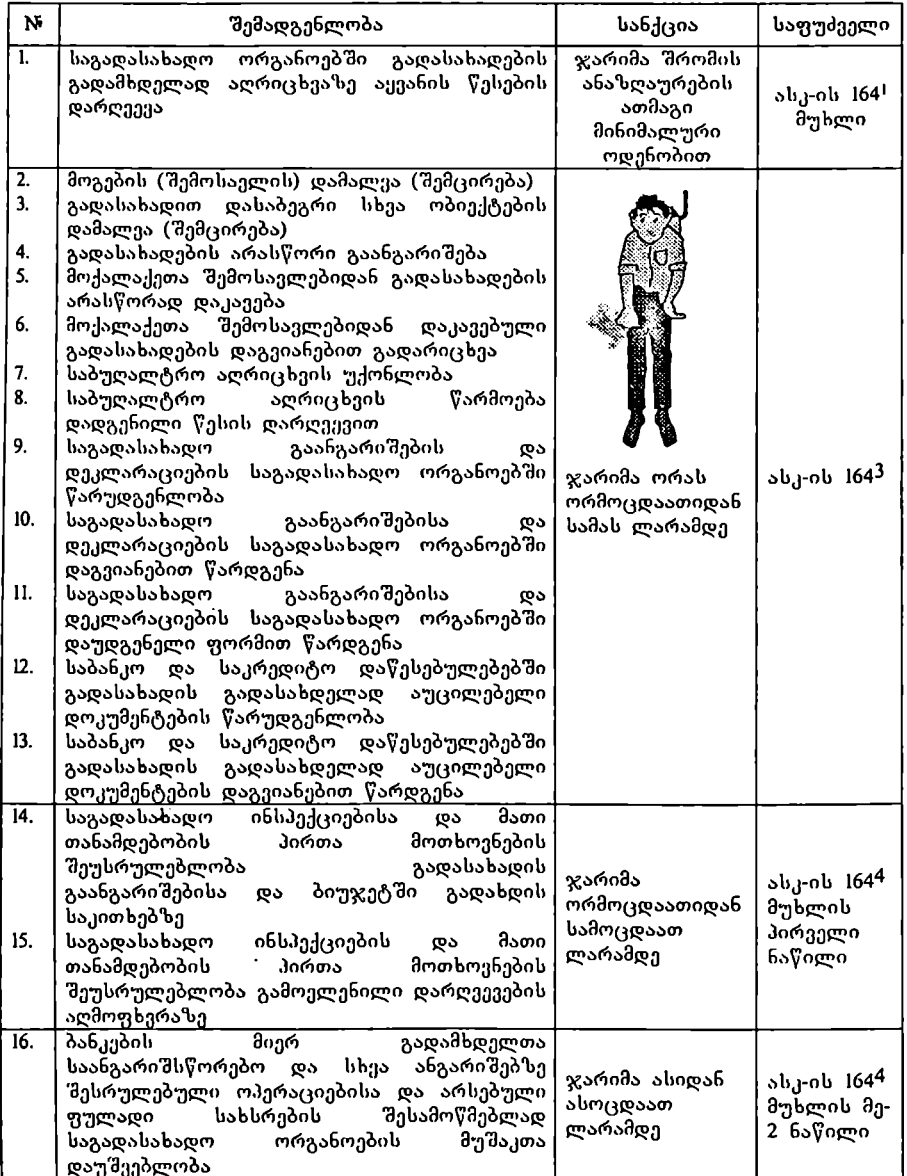 № შემადგენლობა სანქცია საფუძველი
1. საგადასახადო ორგანოებში გადასახადების
გადამხდელად აღრიცხვაზე აყვანის წესების
დარღვევა
ჯარიმა შრომის
ანაზღაურების
ათმაგი
მინიმალური
ოდენობით
ასკ-ის 164¹
მუხლი
2. მოგების (შემოსავლის) დამალვა (შემცირება)
3. გადასახადით დასაბეგრი სხვა ობიექტების
დამალვა (შემცირება)
4. გადასახადების არასწორი გაანგარიშება
5. მოქალაქეთა შემოსავლებიდან გადასახადების
არასწორად დაკავება
6. მოქალაქეთა შემოსავლებიდან დაკავებული
გადასახადების დაგვიანებით გადარიცხვა
7. საბუღალტრო აღრიცხვის უქონლობა
8. საბუღალტრო აღრიცხვის წარმოება
დადგენილი წესის დარღვევით
9. საგადასახადო გაანგარიშების და
დეკლარაციების საგადასახადო ორგანოებში
წარუდგენლობა
10. საგადასახადო გაანგარიშებისა და
დეკლარაციების საგადასახადო ორგანოებში
დაგვიანებით წარდგენა
11. საგადასახადო გაანგარიშებისა და
დეკლარაციების საგადასახადო ორგანოებში
დაუდგენელი ფორმით წარდგენა
12. საბანკო და საკრედიტო დაწესებულებებში
გადასახადის გადასახდელად აუცილებელი
დოკუმენტების წარუდგენლობა
13. საბანკო და საკრედიტო დაწესებულებებში
გადასახადის გადასახდელად აუცილებელი
დოკუმენტების დაგვიანებით წარდგენა
ჯარიმა ორას
ორმოცდაათიდან
სამას ლარამდე
ასკ-ის 164³
14. საგადასახადო ინსპექციებისა და მათი
თანამდებობის პირთა მოთხოვნების
შეუსრულებლობა გადასახადის
გაანგარიშებისა და ბიუჯეტში გადახდის
საკითხებზე
15. საგადასახადო ინსპექციების და მათი
თანამდებობის პირთა მოთხოვნების
შეუსრულებლობა გამოვლენილი დარღვევების
აღმოფხვრაზე
ჯარიმა
ორმოცდაათიდან
სამოცდაათ
ლარამდე
ასკ-ის 164⁴
მუხლის
პირველი
ნაწილი
16. ბანკების მიერ გადამხდელთა
საანგარიშსწორებო და სხვა ანგარიშებზე
შესრულებული ოპერაციებისა და არსებული
ფულადი სახსრების შესამოწმებლად
საგადასახადო ორგანოების მუშაკთა
დაუშვებლობა
ჯარიმა ასიდან
ასოცდაათ
ლარამდე
ასკ-ის 164⁴
მუხლის მე-
2 ნაწილი